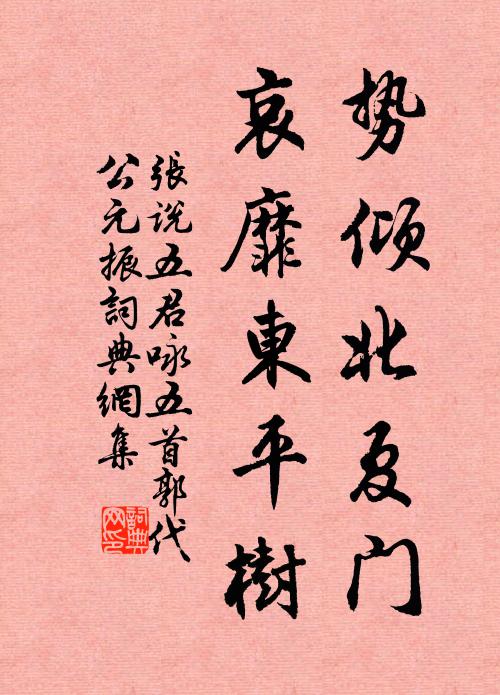 势倾北夏门
哀靡東平樹
張说五君咏五首郭代
公元振詞典網集
詞典网印